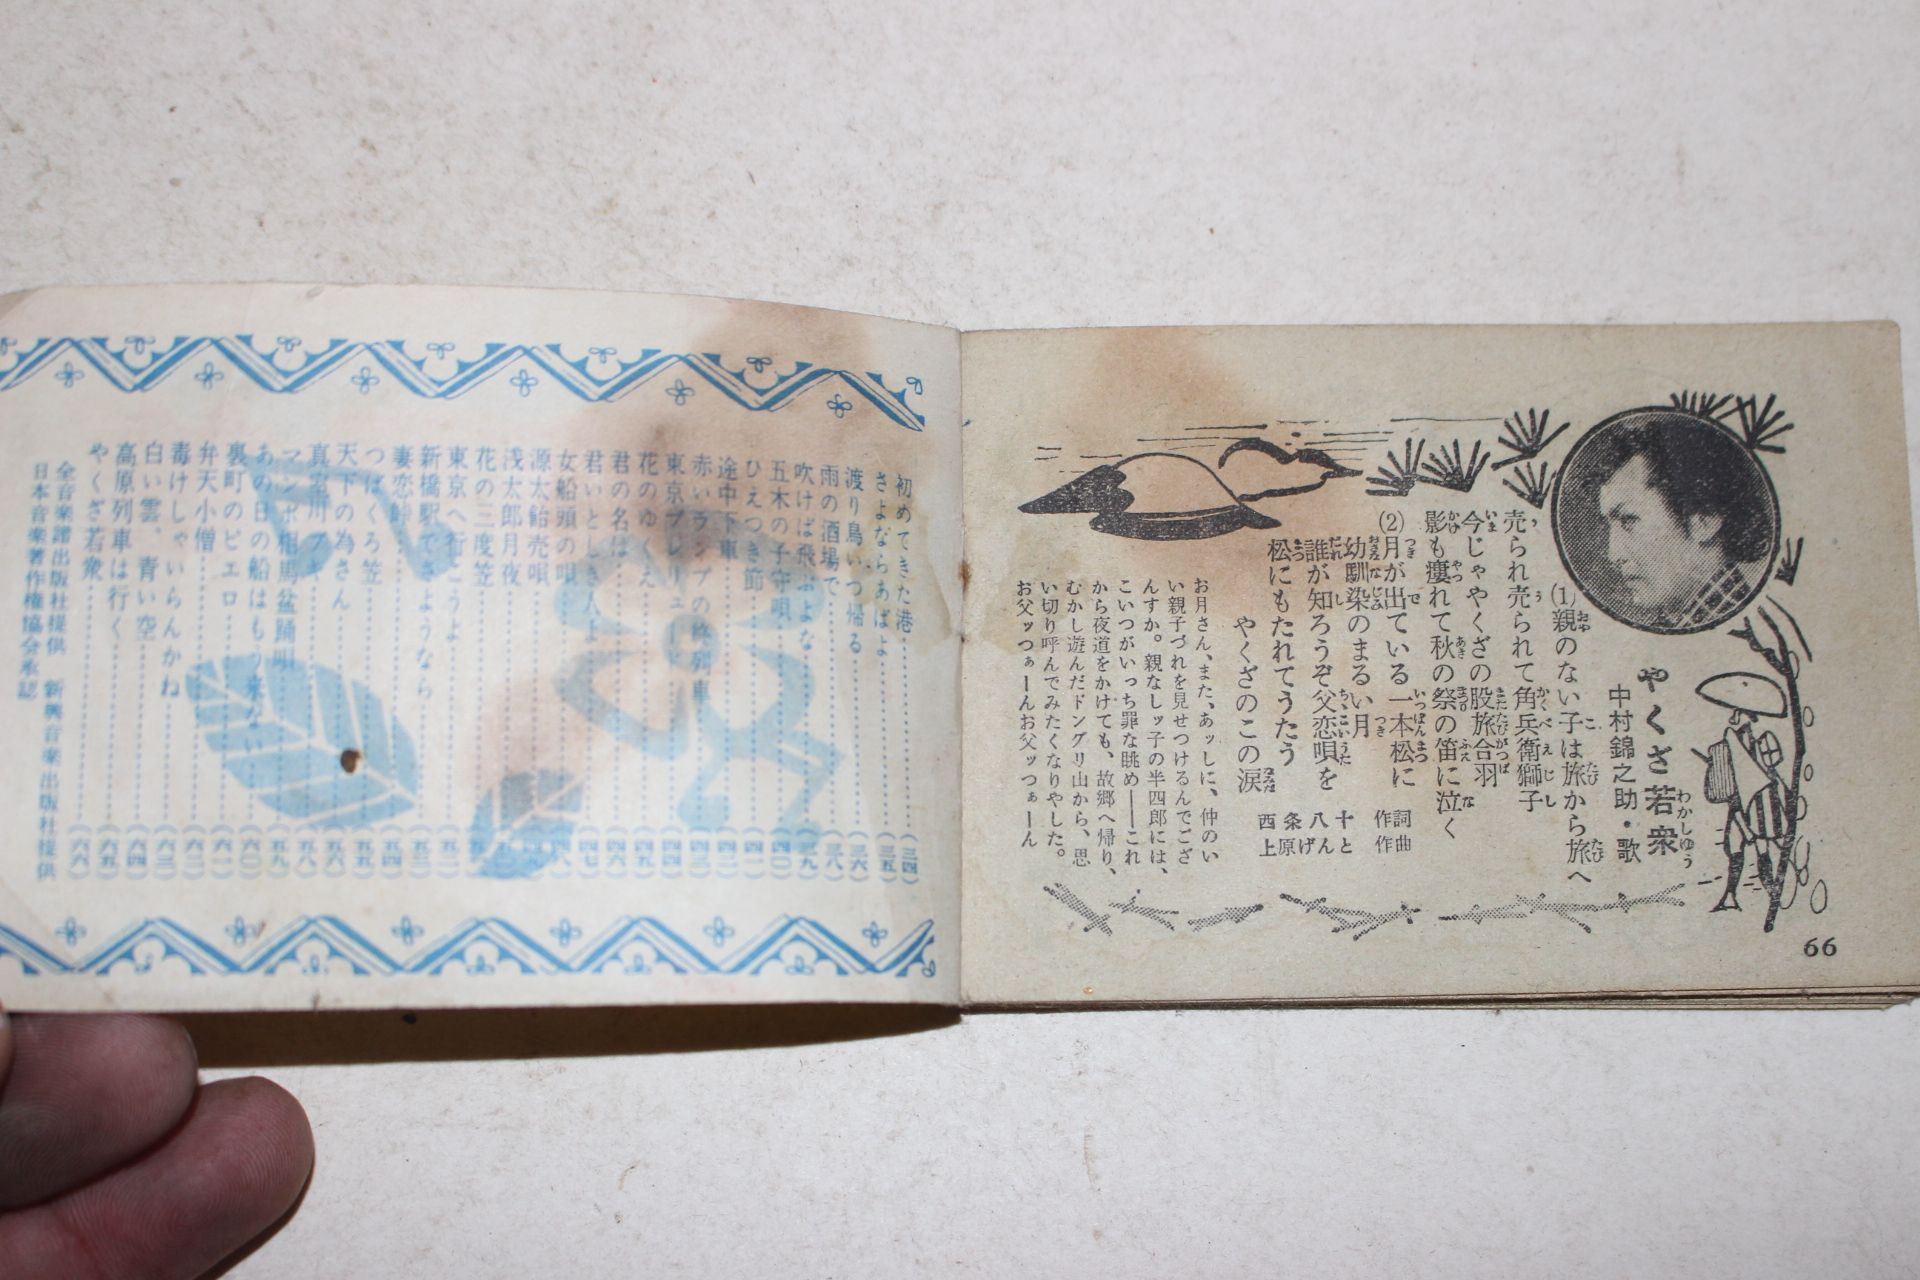 やくざ若衆
わかしゅう
中村錦之助・歌
(1)親のない子は旅から旅へ
売られ売られて角兵衛獅子
今じゃやくざの股旅合羽
影も瘻れて秋の祭の笛に泣く
(2)月が出ている一本松に
幼馴染のまるい月
誰が知ろうぞ父恋唄を
松にもたれてうたう
やくざのこの涙
作詞 西条八十
作曲 上原げんと
お月さん、また、あッしに、仲のい
い親子づれを見せつけるんでござ
んすか。親なしッ子の半四郎には、
こいつがいっち罪な眺め――これ
から夜道をかけても、故郷へ帰り、
むかし遊んだドングリ山から、思
い切り呼んでみたくなりやした。
お父ッつぁーんお父ッつぁーん
66
初めてきた港……(三四)
さよならあばよ……(三五)
渡り鳥いつ帰る……(三六)
雨の酒場で……(三八)
吹けば飛ぶよな……(三九)
五木の子守唄……(四〇)
ひえつき節……(四一)
途中下車……(四二)
赤いランプの終列車……(四三)
東京プレリュード……(四四)
花のゆくえ……(四五)
君の名は……(四六)
君いとしき人よ……(四七)
女船頭の唄……(四八)
源太飴売唄……(四九)
浅太郎月夜
花の三度笠
東京へ行こうよ……(五二)
新橋駅でさようなら……(五三)
妻恋峠……(五五)
つばくろ笠……(五六)
天下の為さん……(五七)
真室川ブギ……(五八)
マンボ相馬盆踊唄……(五九)
あの日の船はもう来ない……(六〇)
裏町のピエロ……(六一)
弁天小僧……(六二)
毒けしゃいらんかね……(六三)
白い雲、青い空……(六四)
高原列車は行く……(六五)
やくざ若衆……(六六)
全音楽譜出版社提供　新興音楽出版社提供
日本音楽著作権協会承認